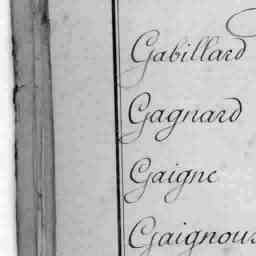 Gabillard
Gagnard
Gaigne
Gaignous